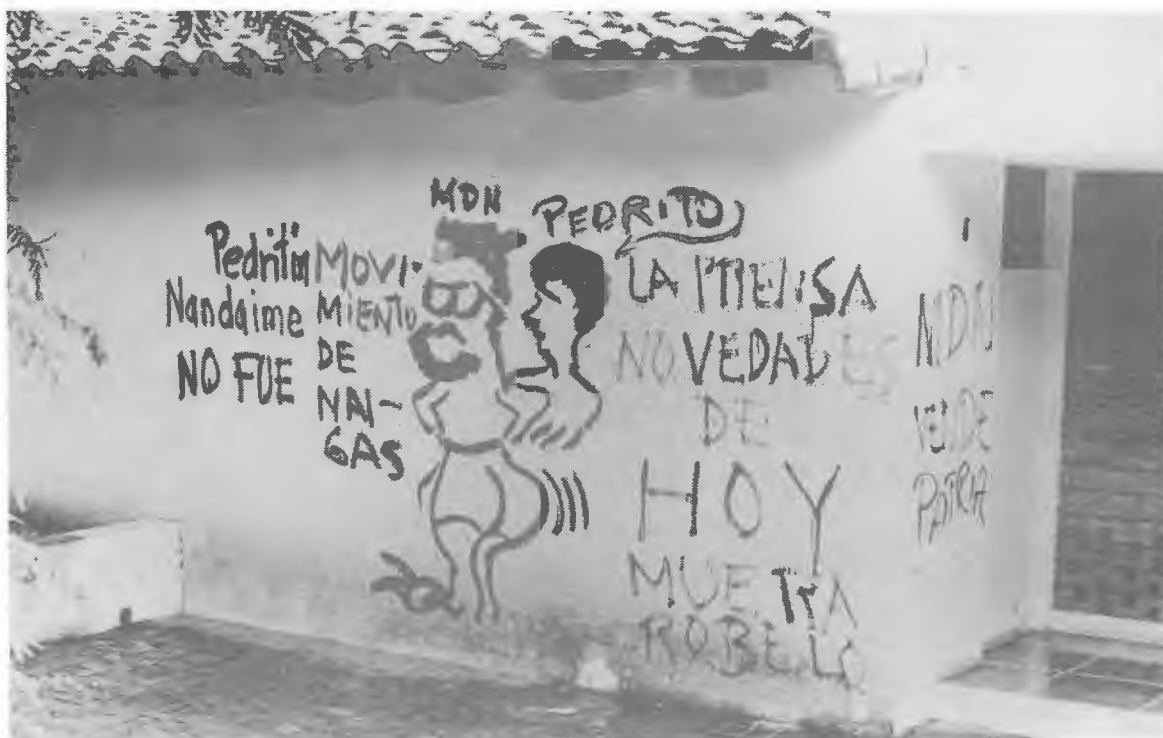 Pedritin
Nandaime
NO FUE
MOVI-
MIENTO
DE
NAL-
GAS
MDN
PEDRITO
LA PRENSA
NOVEDADES
DE
HOY
MUERA
ROBELO
MDN
VENDE
PATRIA